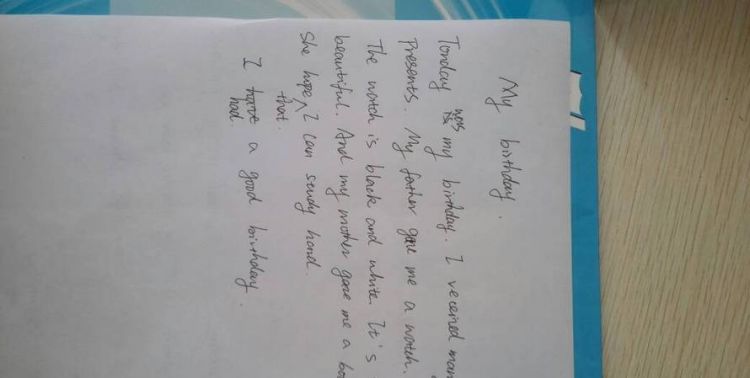 My birthday.
Torday was my birthday. I received
Presents. My father gave me a watch.
The watch is black and white. It's
beautiful. And my mother gave me a
She hope that I can study hard.
I have had a good birthday.